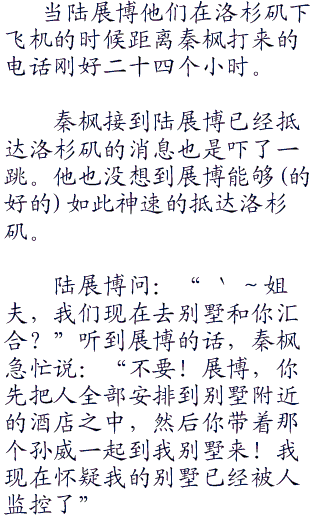 当陆展博他们在洛杉矶下
飞机的时候距离秦枫打来的
电话刚好二十四个小时。
秦枫接到陆展博已经抵
达洛杉矶的消息也是吓了一
跳。他也没想到展博能够(的
好的)如此神速的抵达洛杉
矶。
陆展博问：“｀～姐
夫，我们现在去别墅和你汇
合？”听到展博的话，秦枫
急忙说：“不要！展博，你
先把人全部安排到别墅附近
的酒店之中，然后你带着那
个孙威一起到我别墅来！我
现在怀疑我的别墅已经被人
监控了”